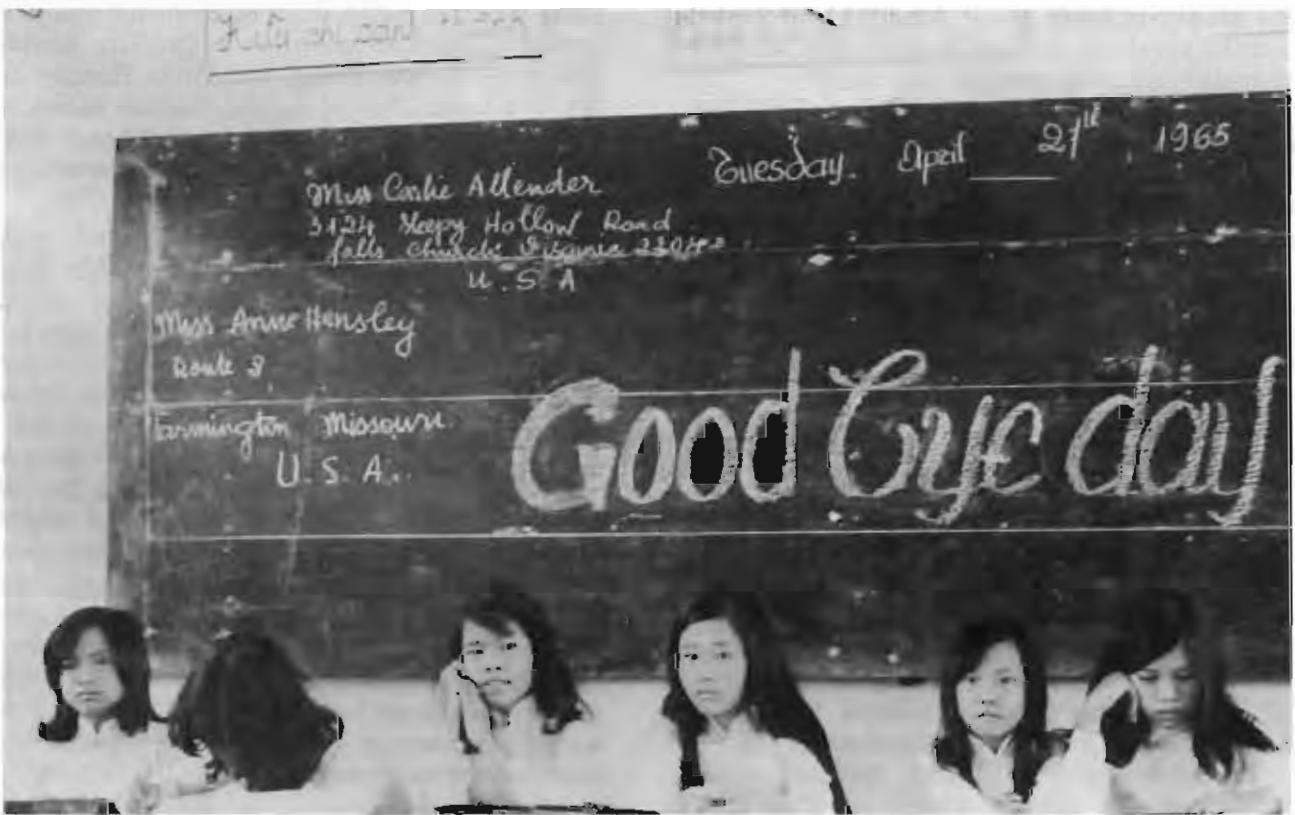 Tuesday. April 27th 1965
Miss Allender
3124 Sleepy Hollow Road
falls Church
U.S.A
Miss Anne Hensley
Route 3
Farmington Missouri.
U.S.A..
Good Bye day